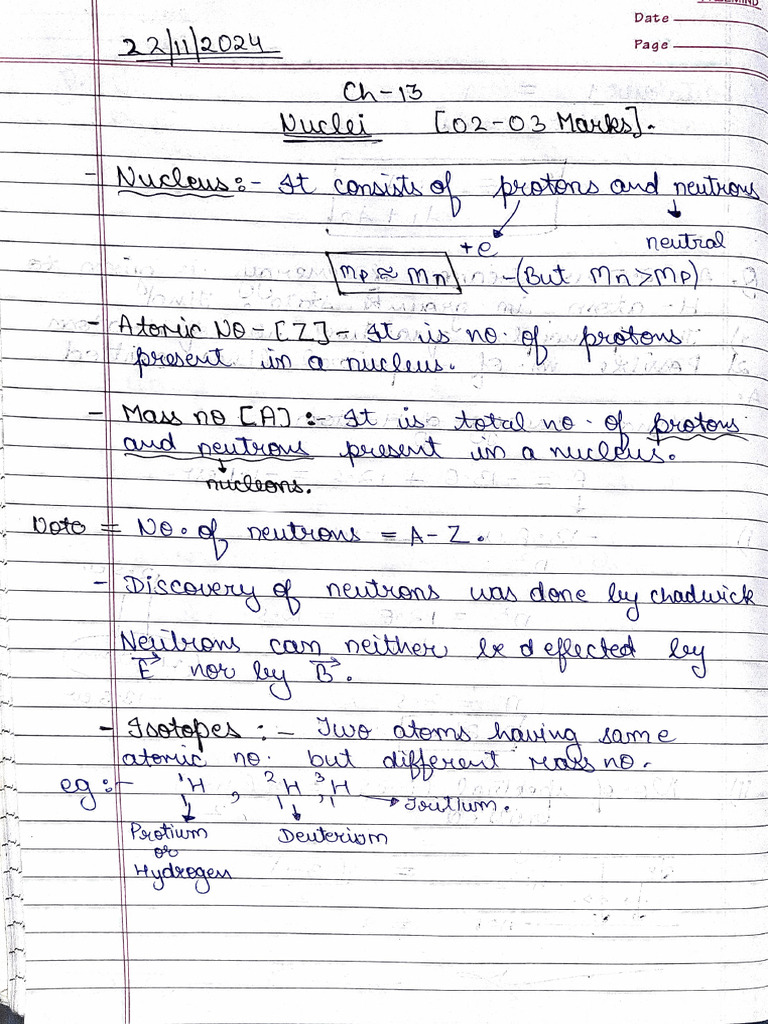 Date
Page
22/11/2024
Ch-13
Nuclei [02-03 Marks].
- Nucleus:- It consists of protons and neutrons
+e neutral
mp ≈ mn -(But Mn>Mp)
- Atomic No-[Z]- It is no. of protons
present in a nucleus.
- Mass no [A] :- It is total no. of protons
and neutrons present in a nucleus.
nucleons.
Note = No. of neutrons = A-Z.
- Discovery of neutrons was done by chadwick
Neutrons can neither be deflected by
E⃗ nor by B⃗.
- Isotopes :- Two atoms having same
atomic no. but different mass no.
eg:- ¹H, ²₁H, ³₁H → Tritium.
Protium Deuterium
or
Hydrogen